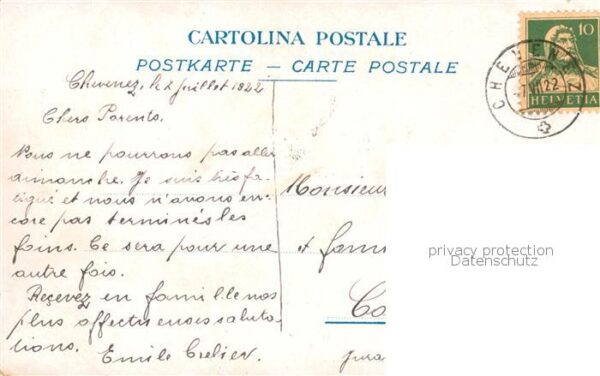 CARTOLINA POSTALE
POSTKARTE – CARTE POSTALE
10
HELVETIA
CHEVENEZ
Chevenez, le 7 Juillet 1922
Chers Parents.
Nous ne pourrons pas aller
dimanche. Je suis très fa-
tigué et nous n'avons en-
core pas terminés les
foins. Ce sera pour une
autre fois.
Reçevez en famille nos
plus affectueuses saluta-
tions. Emile Crelier.
Monsieur
et fam
Co
Jura
privacy protection
Datenschutz